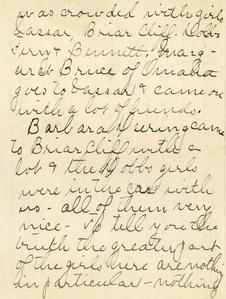 was crowded with girls
Vassar, Briar Cliff. Dobbs
Ferry & Bennett. Marg-
aret Bruce of Omaha
goes to Vassar & came on
with a lot of friends.
Barbara came
to Briar Cliff with a
lot & the Dobbs girls
were in the car with
us - all of them very
nice - To tell you the
truth the greater part
of the girls here are nothing
in particular - nothing